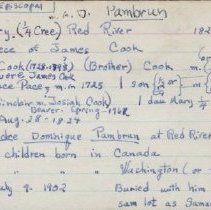 EPISCOPAL
m. A. D. Pambrun
ry. (¼ Cree) Red River 182
ece of James Cook
Cook (1728-1778) (Brother) Cook
were James Cook m.
ace Pace, m. in 1725 1 son
Sinclair m. Josiah Cook 1 dau Mary
Beaver. Spring-1768
Aug-28-1827
dee Dominique Pambrun at Red River
children born in Canada
" " " Washington (or
ly 9-1902 Buried with him
sam lot as Samu